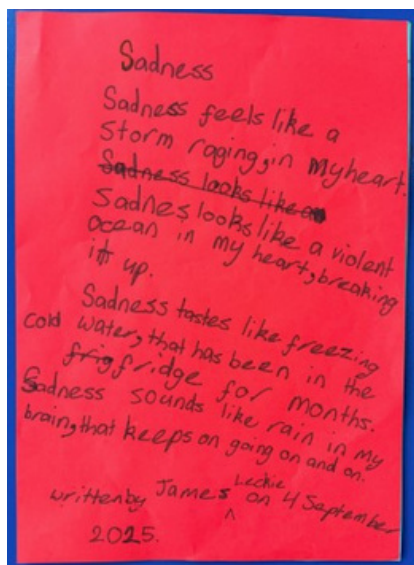 Sadness
Sadness feels like a
storm raging, in my heart.
Sadness looks like a
Sadnes looks like a violent
ocean in my heart, breaking
it up.
Sadness tastes like freezing
cold water, that has been in the
frig fridge for months.
Sadness sounds like rain in my
brain, that keeps on going on and on.
written by James Leckie on 4 September
2025.